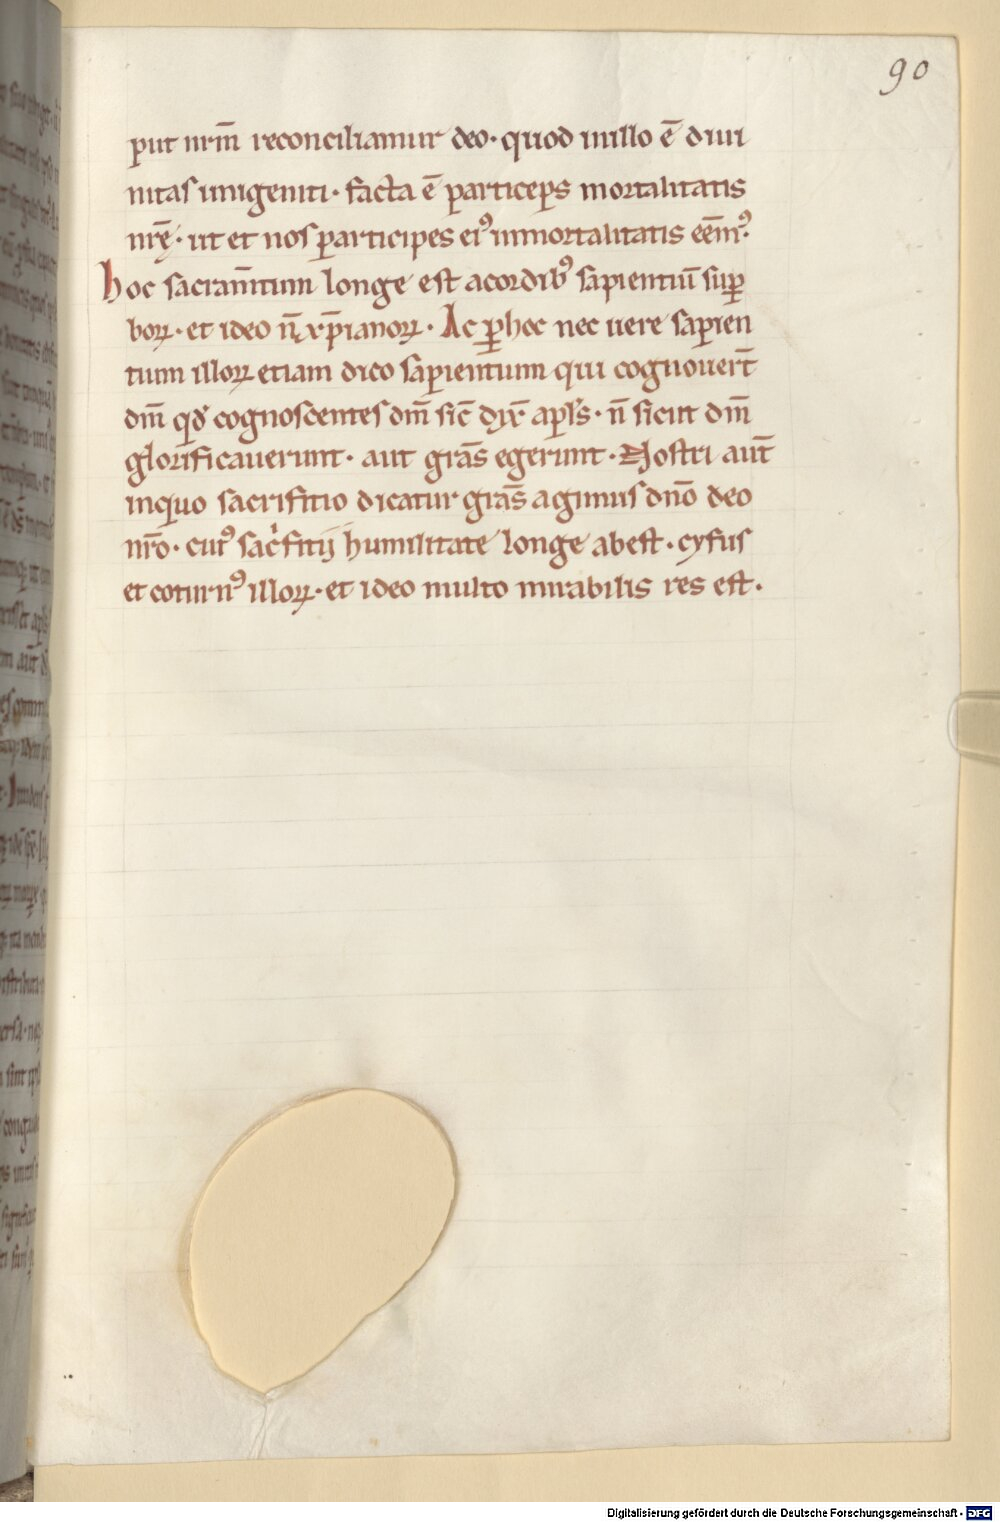 90
put nr̄m reconciliamur deo· quod in illo ē diui
nitas unigeniti· facta ē particeps mortalitatis
nrę̄· ut et nos participes ei᷒ inmortalitatis eēm᷒·
hoc sacram̄tum longe est acordib᷒ sapientiū suꝑ
boꝝ· et ideo n̄ xp̄ianoꝝ· Ac ꝑ hoc nec uere sapien
tum illoꝝ etiam dico sapientum qui cognouert̄
dm̄ qđ cognoscentes dm̄ sic̄ dix̄ apl̄s· n̄ sicut dm̄
glorificauerunt· aut grās egerunt· Nostri aut̄
inquo sacrifitio dicatur grās agimus dn̄o deo
nr̄o· cui᷒ sac̍fitij humilitate longe abest· cyfus
et coturn᷒ illoꝝ· et ideo multo mirabilis res est·
Digitalisierung gefördert durch die Deutsche Forschungsgemeinschaft - DFG